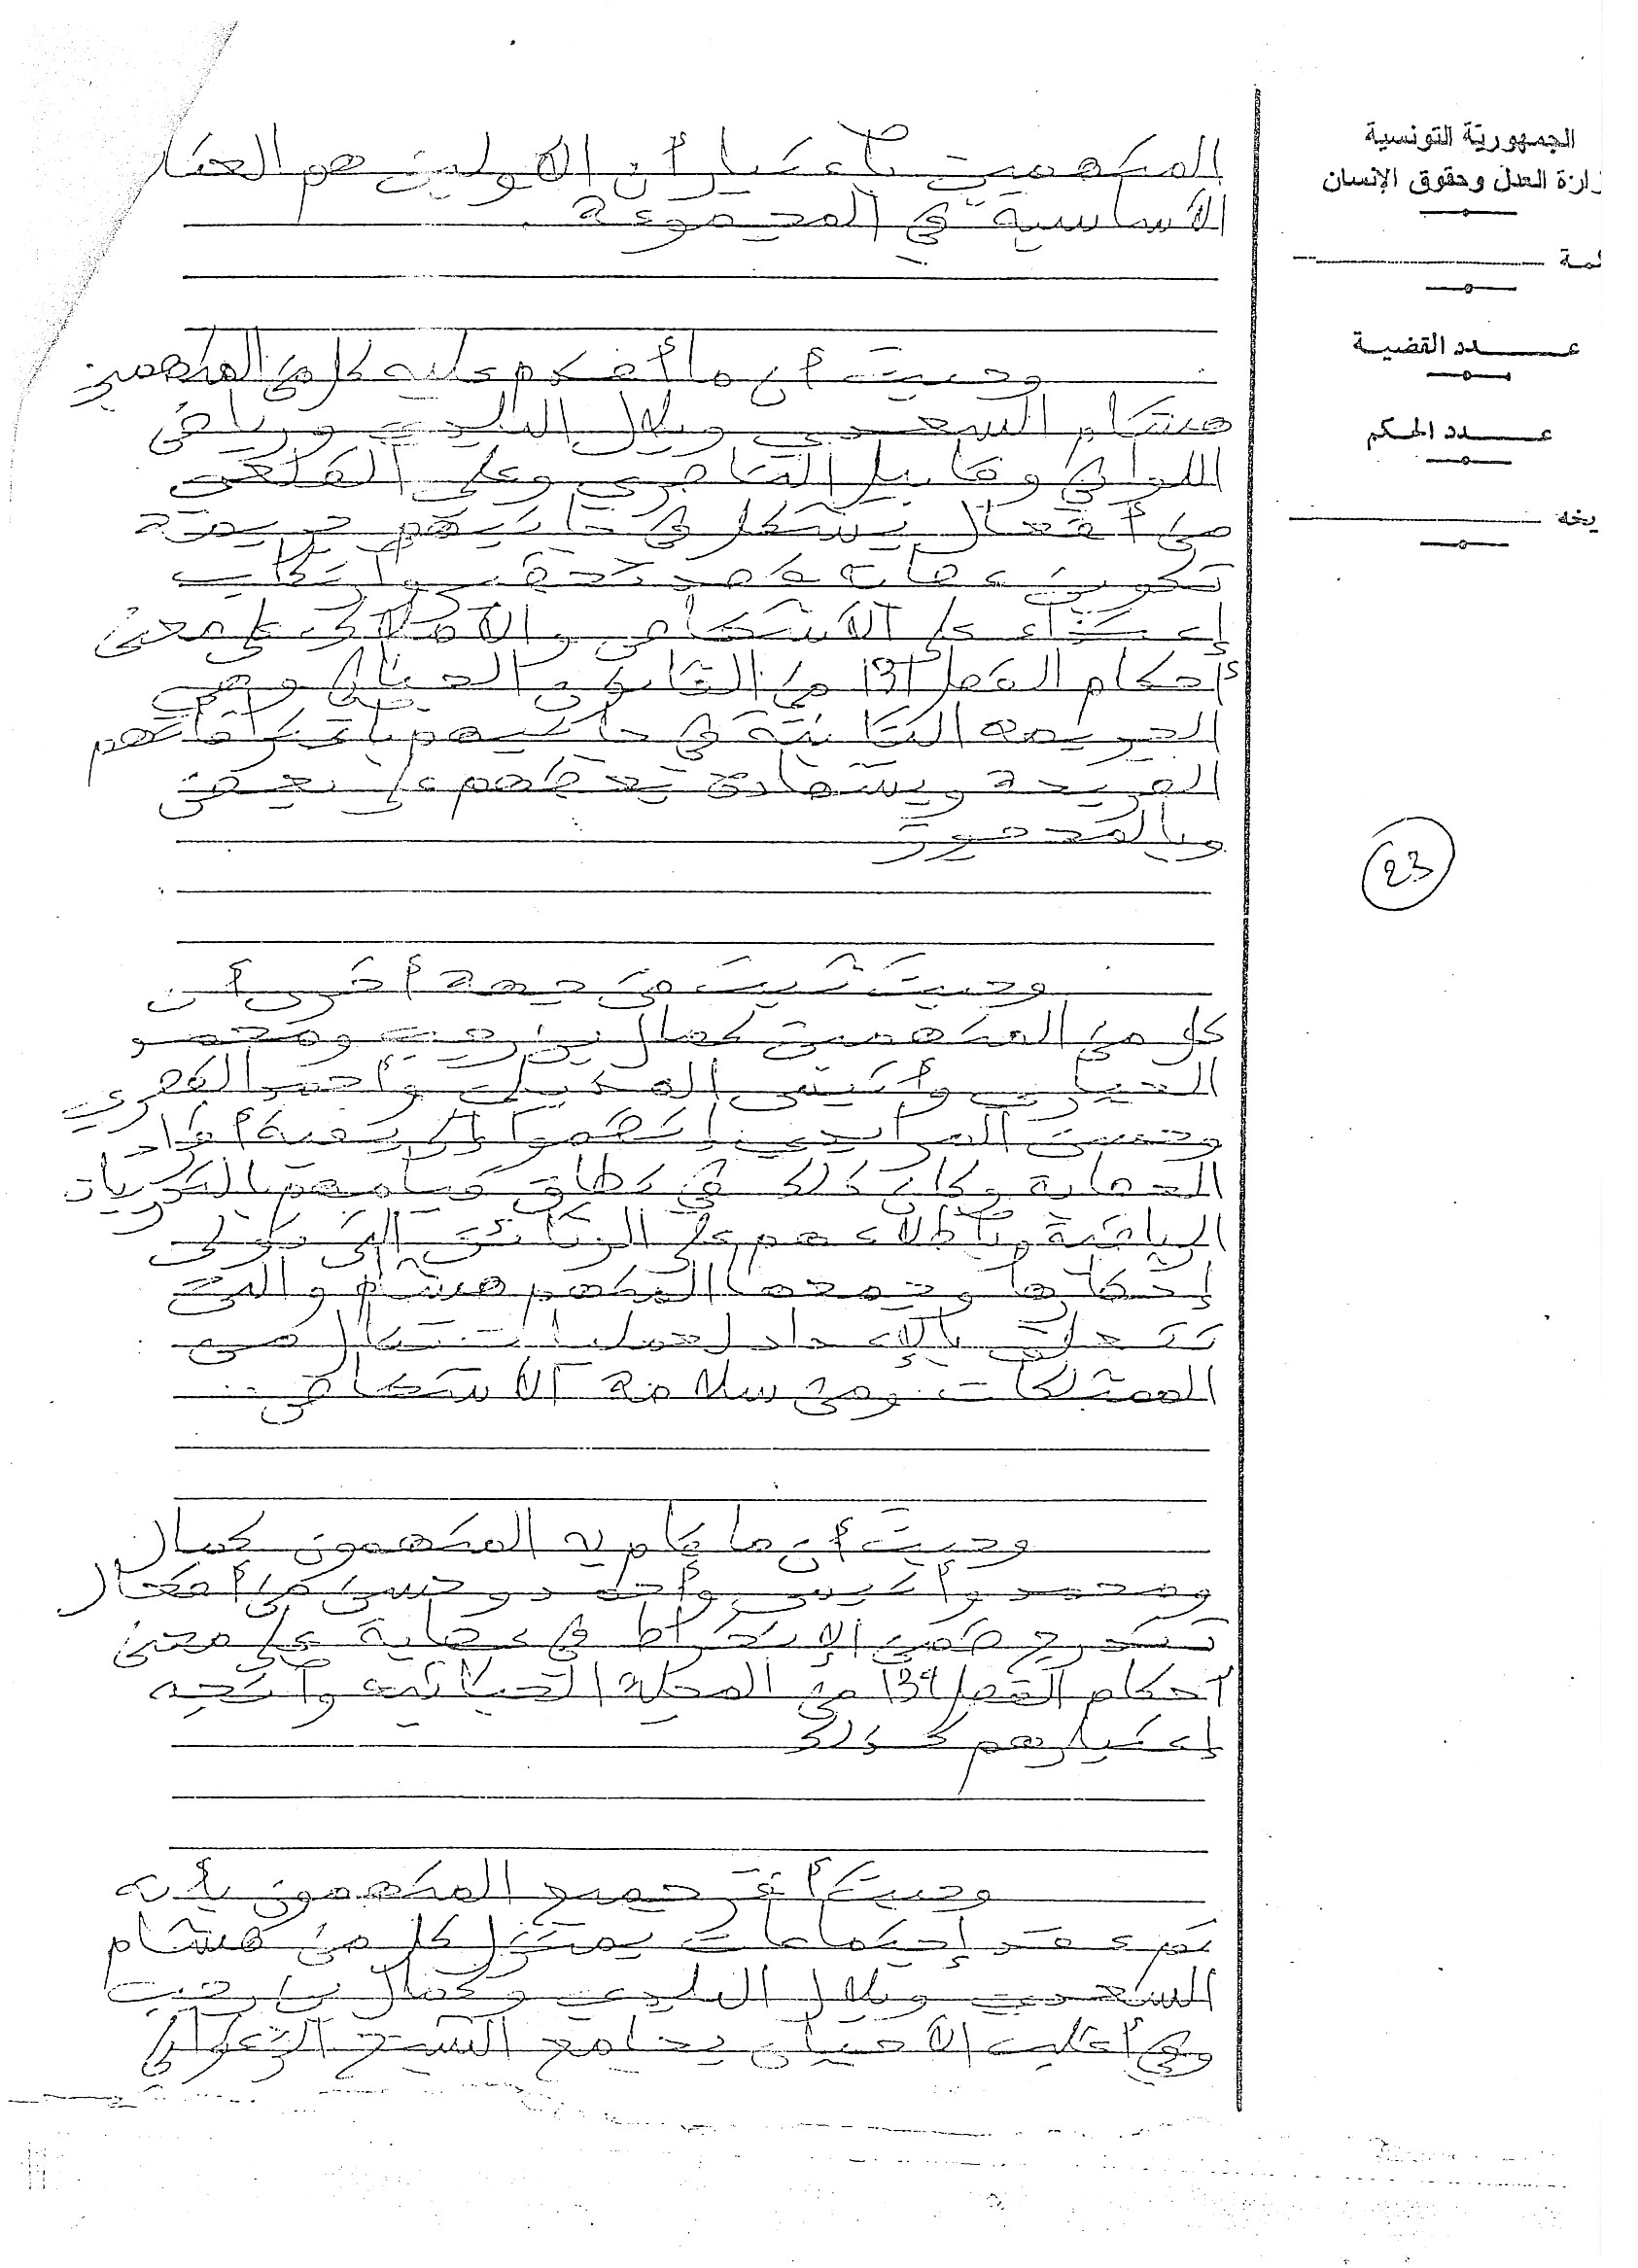 الجمهورية التونسية
زارة العدل وحقوق الإنسان
ـمة
عدد القضية
عدد الحكم
ـيخه
23
المتهمين بإعتبار أن الأولين هم العنا
الأساسية في المجموعة
وحيث أن ما أقدم عليه كل من المتهمين
هشام السعدي وبلال البلدي ورياض
اللواتي و التاجري وعلي القلعي
من أفعال يشكل في جانبهم جريمة
تكوين عصابة قصد تحضير وارتكاب
إعتداء على الأشخاص والأملاك على معنى
أحكام الفصل 131 من القانون الجنائي وهي
الجريمة الثابتة في جانبهم بإعترافاتهم
الصريحة وبشهادة بعضهم على بعض
وبالمحجوز
وحيث ثبت من جهة أخرى أن
كل من المتهمين كمال بن رجب ومحمد
الجيلاني وأنيس وأحمد
وحسين انضموا إلى بقية أفراد
العصابة وكان ذلك في نطاق قيامهم بالتدريبات
الرياضية وبإطلاعهم على الوثائق التي تولى
إحضارها وجمعها المتهم هشام والتي
تتعلق بالإعداد لعمليات تنال من
الممتلكات ومن سلامة الأشخاص
وحيث أن ما قام به المتهمون كمال
ومحمد وأنيس وأحمد وحسين من أفعال
تندرج ضمن الإنخراط في عصابة على معنى
أحكام الفصل 131 من المجلة الجنائية واتجه
إعتبارهم كذلك
وحيث أقر جميع المتهمون بأنه
تم عقد إجتماعات بمنزل كل من هشام
السعدي وبلال البلدي وكمال بن رجب
وفي أغلب الأحيان بجامع الشيخ